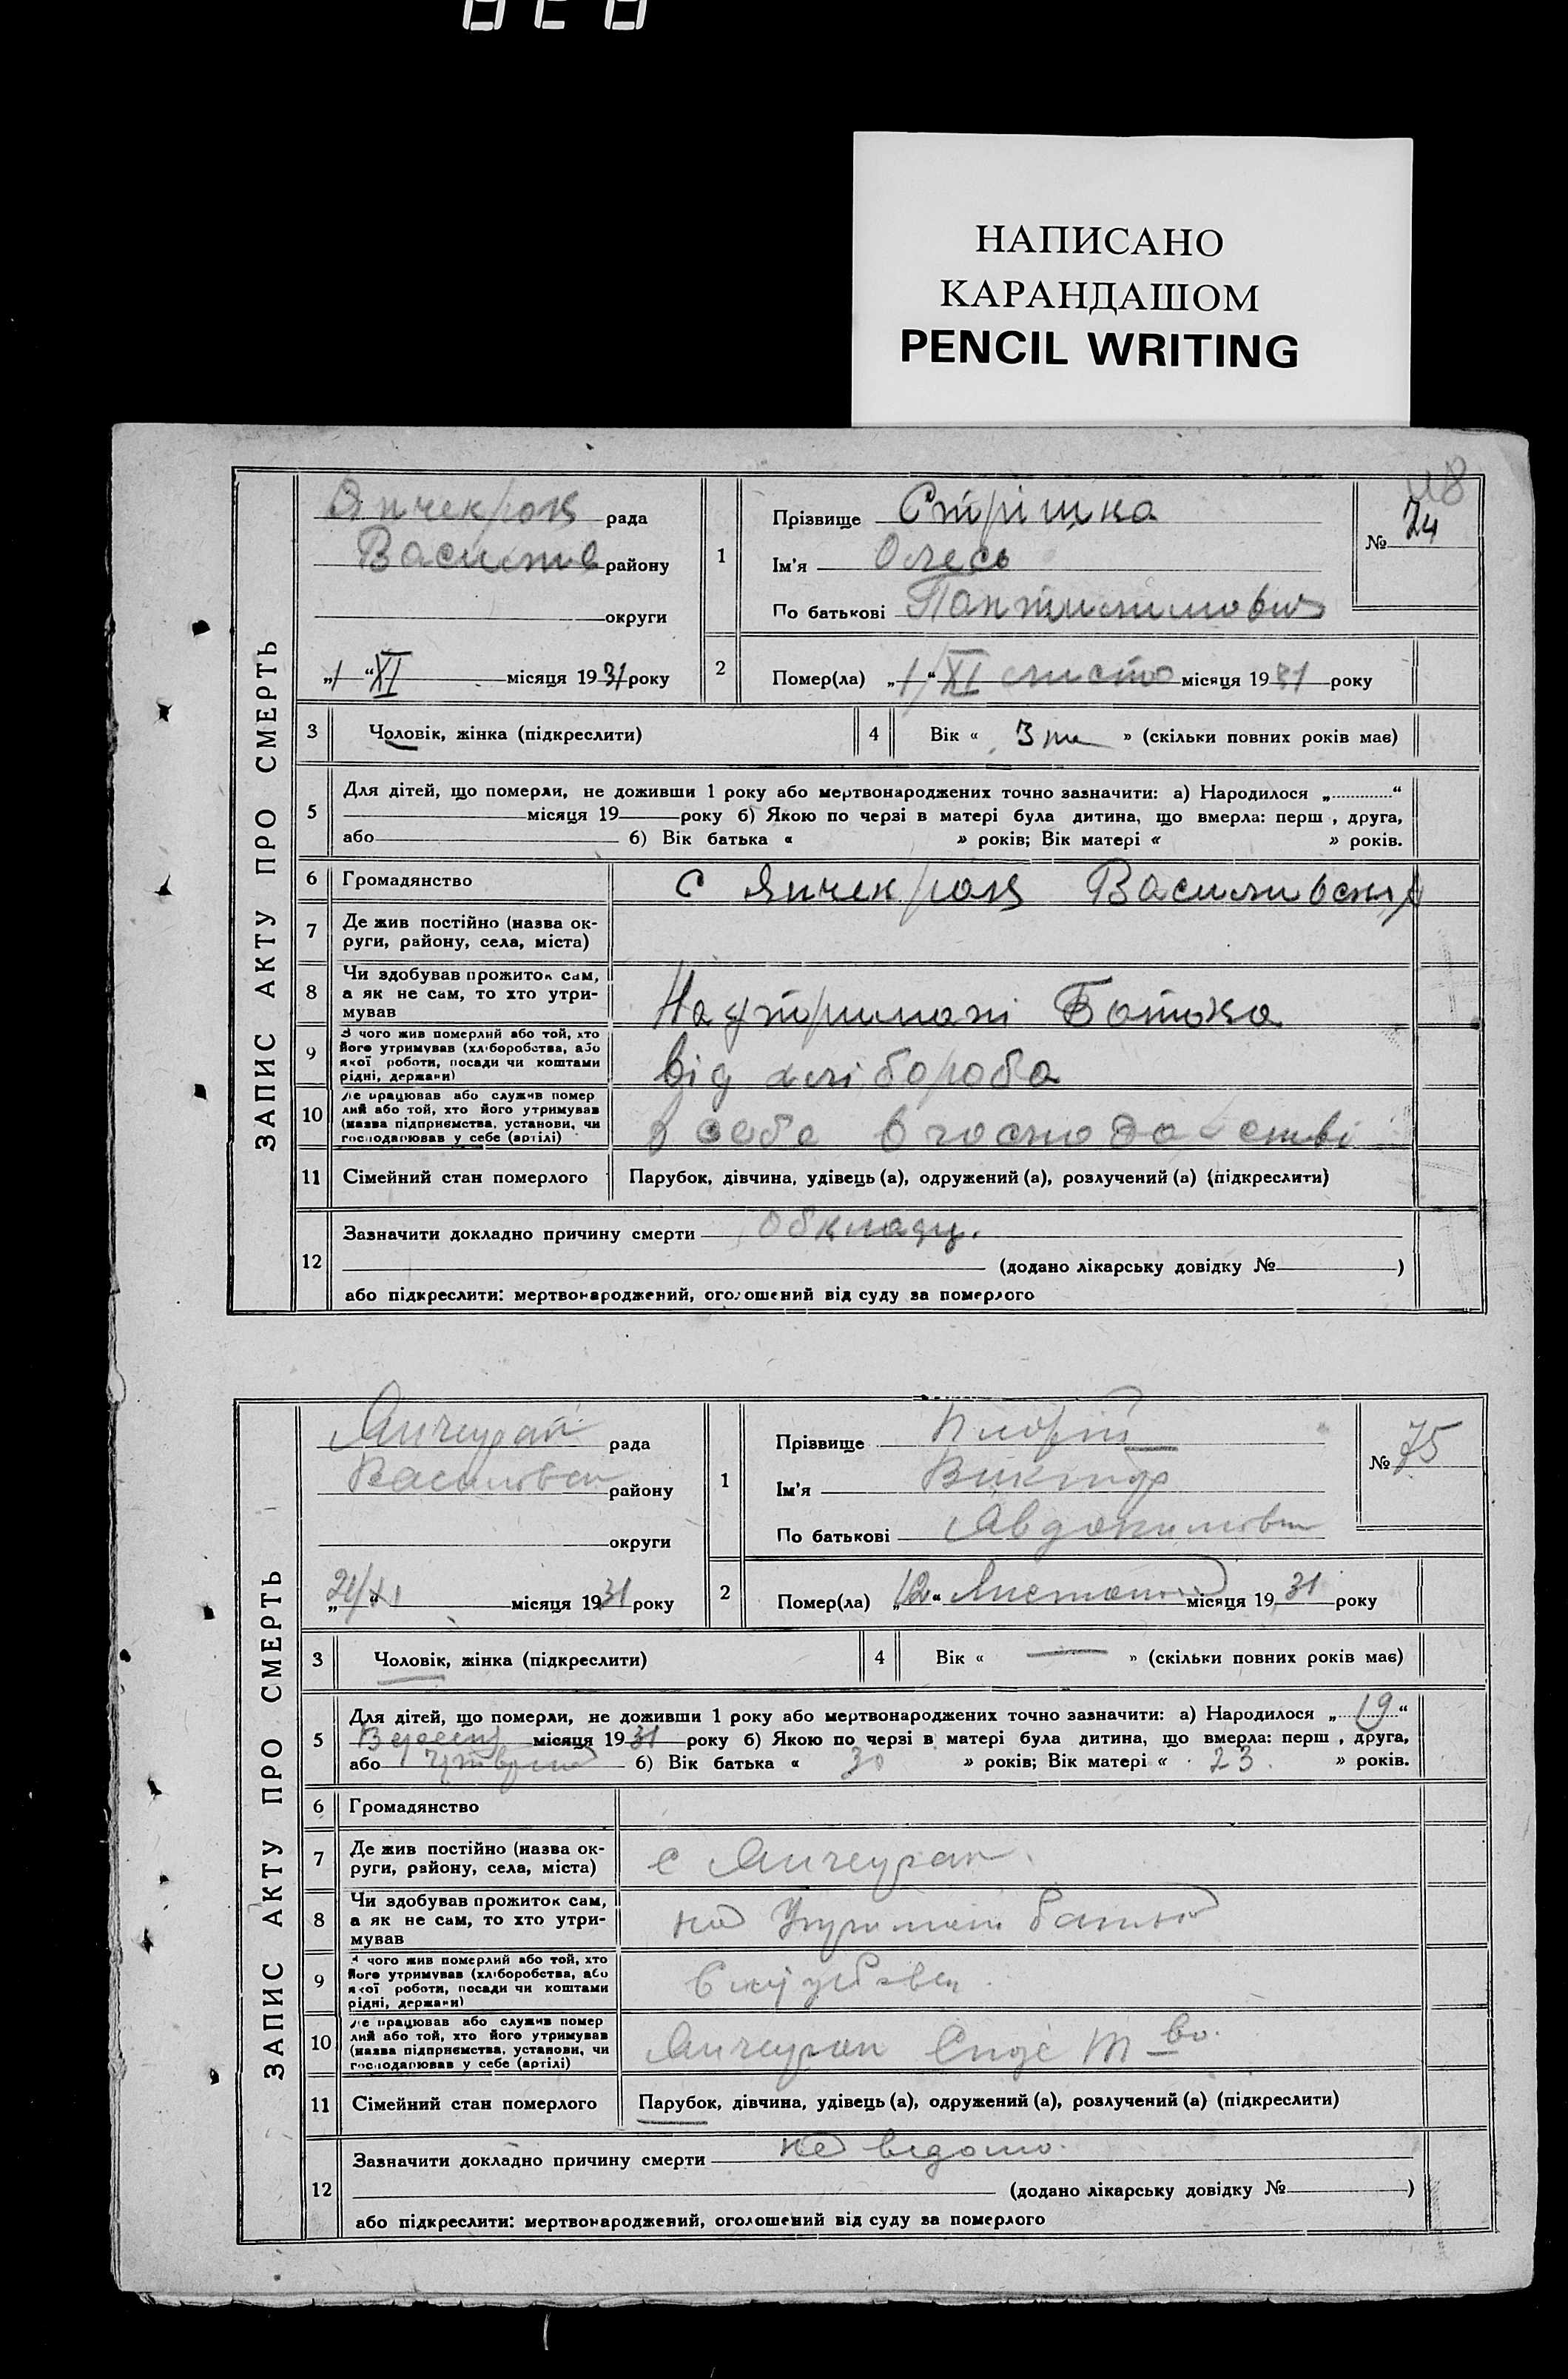 НАПИСАНО
КАРАНДАШОМ
PENCIL WRITING
ЗАПИС АКТУ ПРО СМЕРТЬ
Янчекрак рада
району
округи
„1“ XI місяця 1931 року
1
Прізвище Стрішка
Ім'я Олесь
По батькові
№ 74
2 Помер(ла) „1“ XI листо місяця 1931 року
3 Чоловік, жінка (підкреслити)
4 Вік « 3 » (скільки повних років має)
5 Для дітей, що померли, не доживши 1 року або мертвонароджених точно зазначити: а) Народилося „ “
місяця 19 року б) Якою по черзі в матері була дитина, що вмерла: перш , друга,
або б) Вік батька « » років; Вік матері « » років.
6 Громадянство с Янчекрак
7 Де жив постійно (назва ок-
руги, району, села, міста)
8 Чи здобував прожиток сам,
а як не сам, то хто утри-
мував
На утримані Батька
9 З чого жив померлий або той, хто
його утримував (хліборобства, або
якої роботи, посади чи коштами
рідні, держави)
від хлібороба
10 Де працював або служив помер
лий або той, хто його утримував
(назва підприємства, установи, чи
господарював у себе (артілі)
у себе в господарстві
11 Сімейний стан померлого Парубок, дівчина, удівець (а), одружений (а), розлучений (а) (підкреслити)
12 Зазначити докладно причину смерти
(додано лікарську довідку № )
або підкреслити: мертвонароджений, оголошений від суду за померлого
ЗАПИС АКТУ ПРО СМЕРТЬ
Янчекрак рада
району
округи
місяця 1931 року
1
Прізвище
Ім'я Віктор
По батькові
№ 75
2 Помер(ла) „12“ Листопада місяця 1931 року
3 Чоловік, жінка (підкреслити)
4 Вік « — » (скільки повних років має)
5 Для дітей, що померли, не доживши 1 року або мертвонароджених точно зазначити: а) Народилося „19“
Вересня місяця 1931 року б) Якою по черзі в матері була дитина, що вмерла: перш , друга,
або б) Вік батька « 30 » років; Вік матері « 23 » років.
6 Громадянство
7 Де жив постійно (назва ок-
руги, району, села, міста)
с Янчекрак
8 Чи здобував прожиток сам,
а як не сам, то хто утри-
мував
на Утримані батька
9 З чого жив померлий або той, хто
його утримував (хліборобства, або
якої роботи, посади чи коштами
рідні, держави)
10 Де працював або служив помер
лий або той, хто його утримував
(назва підприємства, установи, чи
господарював у себе (артілі)
Янчекрак
11 Сімейний стан померлого Парубок, дівчина, удівець (а), одружений (а), розлучений (а) (підкреслити)
12 Зазначити докладно причину смерти не відомо
(додано лікарську довідку № )
або підкреслити: мертвонароджений, оголошений від суду за померлого